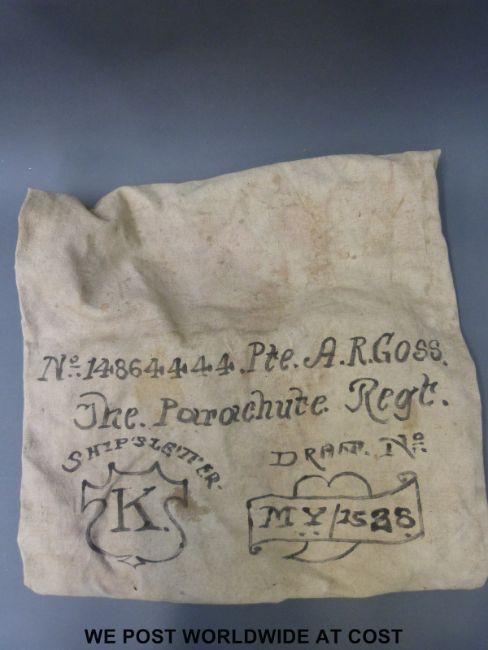 No. 14864444. Pte. A.R.Goss.
The. Parachute. Regt.
SHIP'S LETTER.
K.
DRAFT. No.
M.Y/1528
WE POST WORLDWIDE AT COST